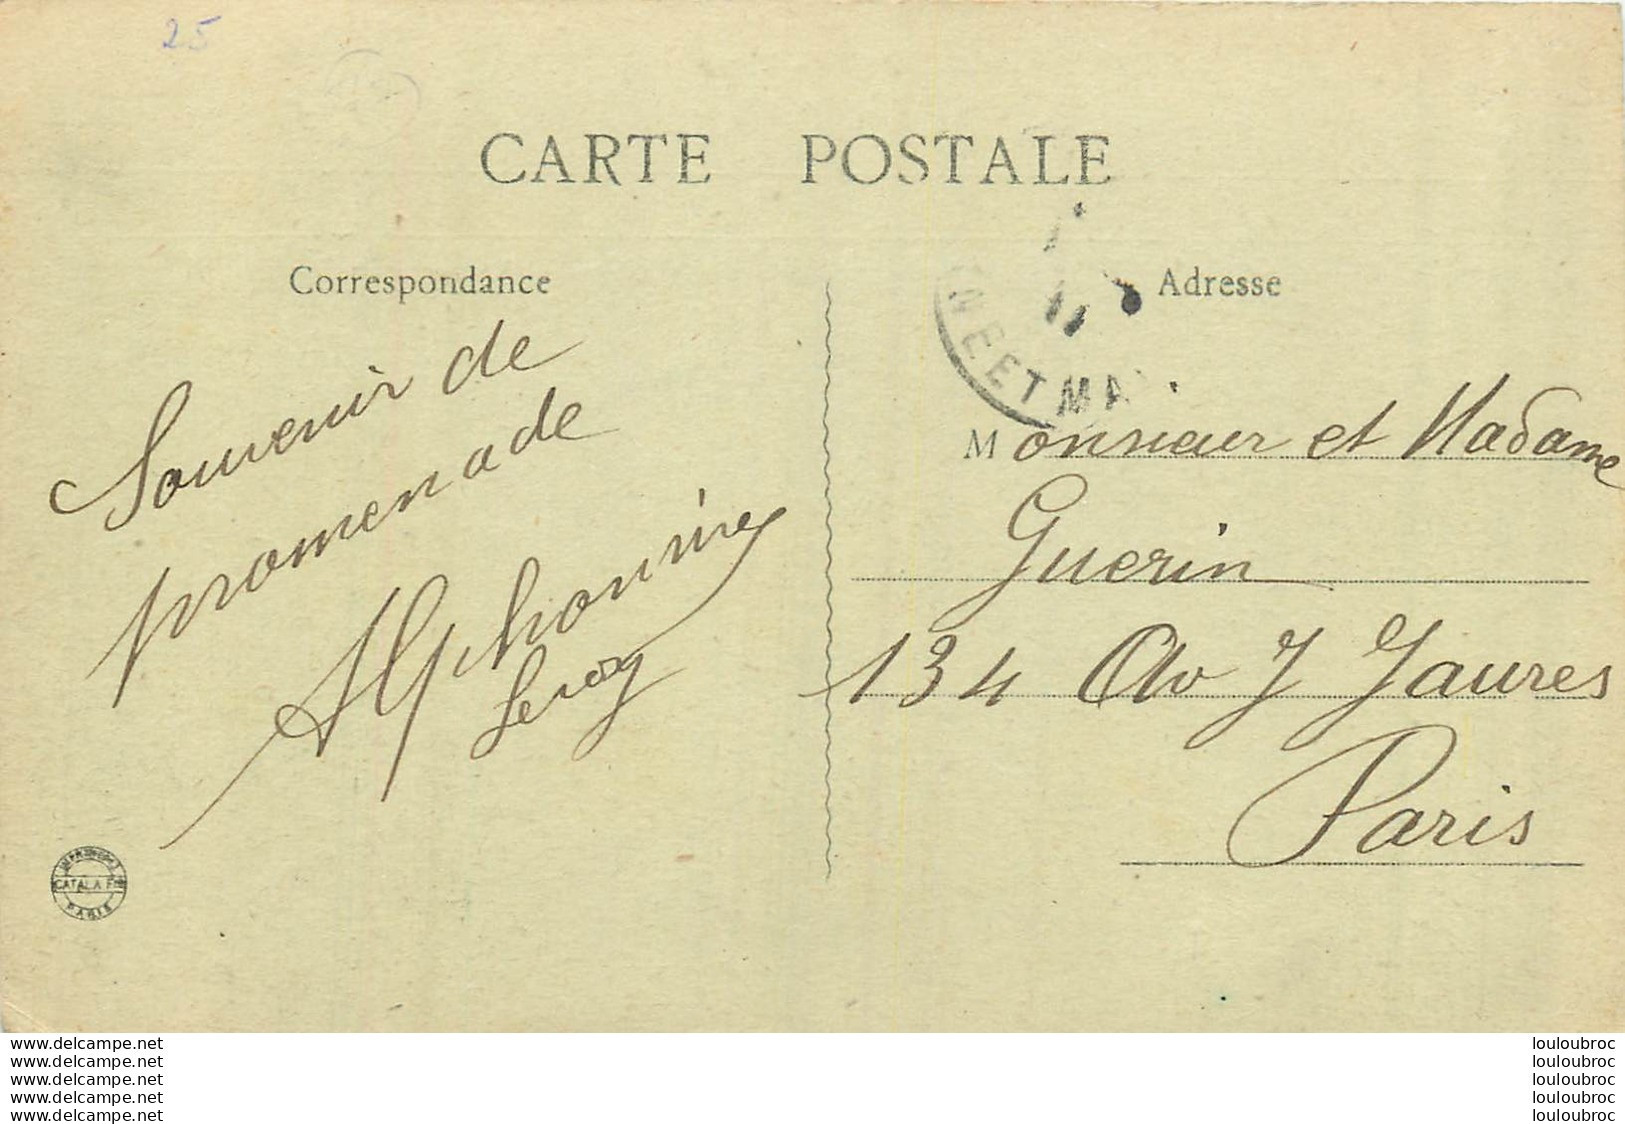 25
CARTE POSTALE
Correspondance
Adresse
NEETMA
11
Souvenir de
promenade
Alphonsine
Leroy
Monsieur et Madame
Guerin
134 Av J Jaures
Paris
CATALA Fres
PARIS
www.delcampe.net
www.delcampe.net
www.delcampe.net
www.delcampe.net
www.delcampe.net
louloubroc
louloubroc
louloubroc
louloubroc
louloubroc